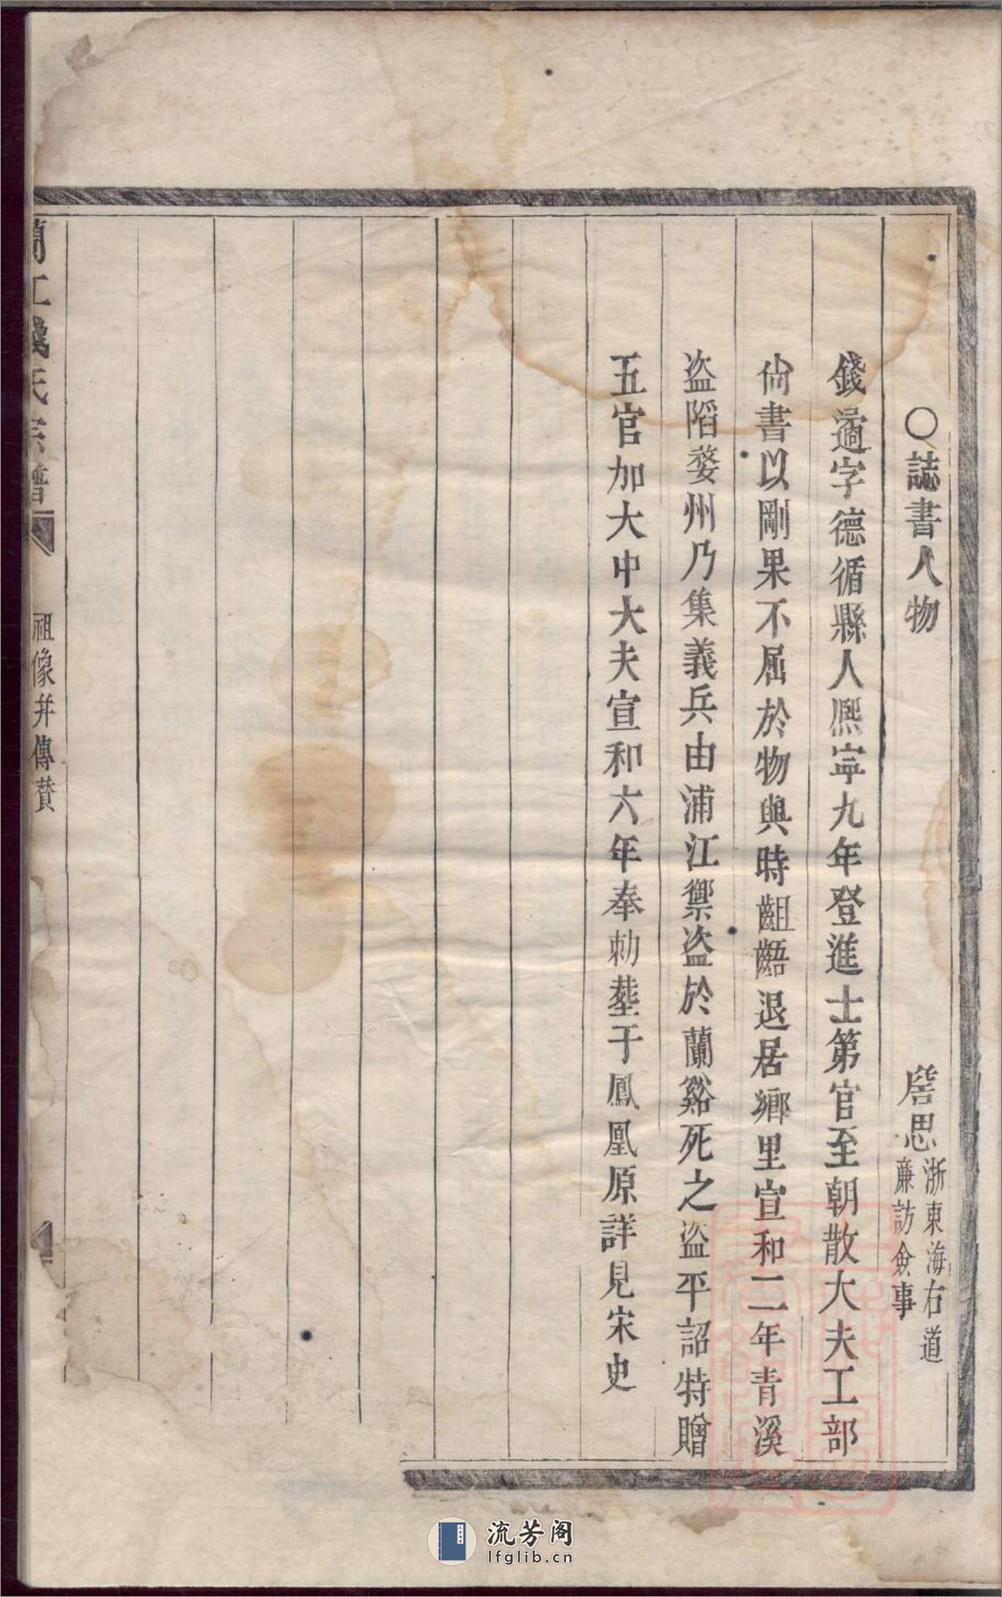 〇誌書人物
屠思浙東海右道
廉訪僉事
錢遹字德循縣人熈寧九年登進士第官至朝散大夫工部
尙書以剛果不屈於物與時齟齬退居鄉里宣和二年青溪
盗陷婺州乃集義兵由浦江禦盗於蘭谿死之盗平詔特贈
五官加大中大夫宣和六年奉勑塟于鳳凰原詳見宋史
蘭江錢氏宗譜
祖像并傳贊
流芳阁
lfglib.cn